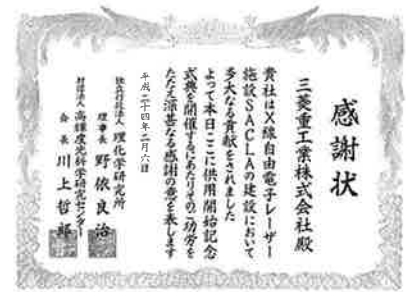 感謝状
三菱重工業株式会社殿
貴社はX線自由電子レーザー
施設SACLAの建設において
多大なる貢献をされました
よって本日ここに供用開始記念
式典を開催するにあたりそのご功労を
たたえ深甚なる感謝の意を表します
平成二十四年二月六日
独立行政法人 理化学研究所
理事長 野依良治
財団法人 高輝度光科学研究センター
会長 川上哲郎